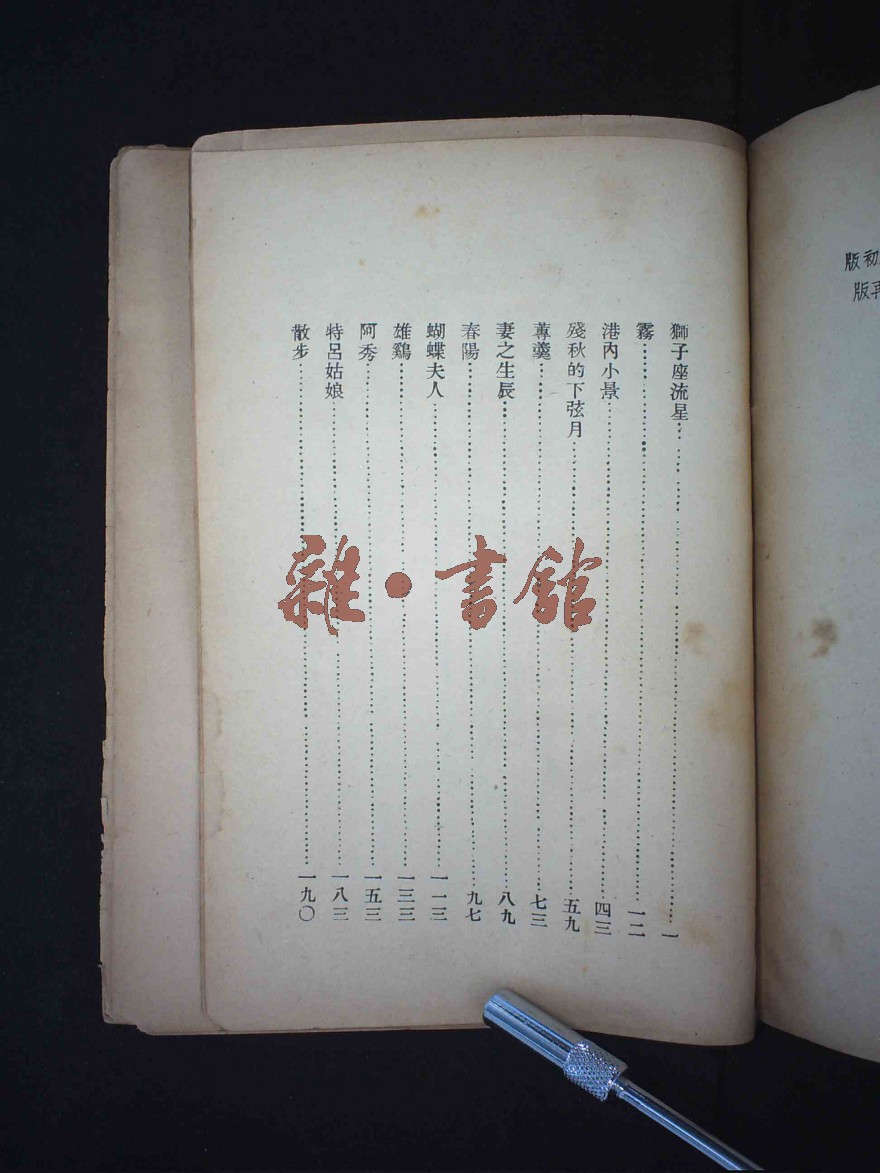 初版
再版
獅子座流星……一
霧……一二
港內小景……四三
殘秋的下弦月……五九
蓴羹……七三
妻之生辰……八九
春陽……九七
蝴蝶夫人……一一三
雄鷄……一三三
阿秀……一五三
特呂姑娘……一八三
散步……一九〇
雜·書館